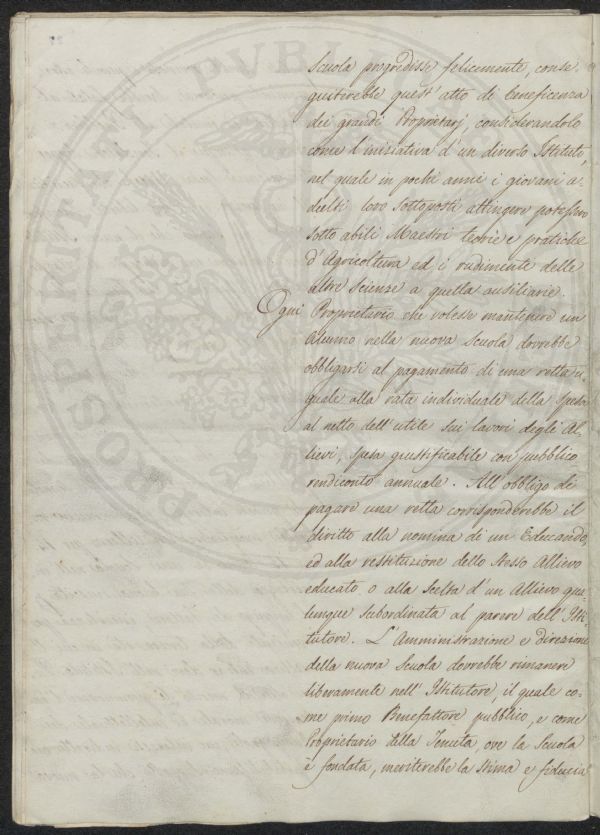 scuola progredisse felicemente, conse-
guiterebbe quest'atto di beneficenza
dei grandi Proprietarj, considerandolo
come l'iniziativa d'un diverso Istituto,
nel quale in pochi anni i giovani a-
dulti loro sottoposti attingere potessero
sotto abili Maestri teorie e pratiche
d'Agricoltura ed i rudimente delle
altre scienze a quella ausiliarie.
Ogni Proprietario che volesse mantenere un
Alunno nella nuova Scuola dovrebbe
obbligarsi al pagamento di una retta u-
guale alla rata individuale della spesa
al netto dell'utile sui lavori degli Al-
lievi, spesa giustificabile con pubblico
rendiconto annuale. All'obbligo di
pagare una retta corrisponderebbe il
diritto alla nomina di un Educando,
ed alla restituzione dello stesso Allievo
educato, o alla scelta d'un Allievo qua-
lunque subordinata al parere dell'Isti-
tutore. L'Amministrazione e direzione
della nuova Scuola dovrebbe rimanere
liberamente nell'Istitutore, il quale co-
me primo Benefattore pubblico, e come
Proprietario della Tenuta, ove la Scuola
è fondata, meriterebbe la stima e fiducia
PROSPERITATI PVBLI